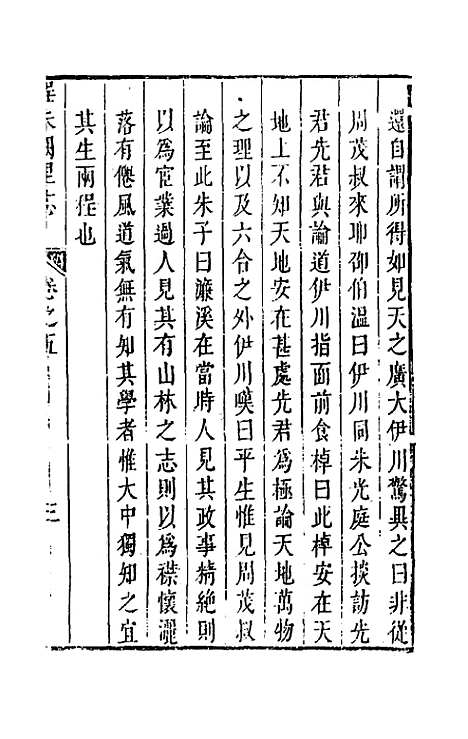 還自謂所得如見天之廣大伊川驚異之曰非從
周茂叔來耶邵伯溫曰伊川同朱光庭公掞訪先
君先君與論道伊川指面前食棹曰此棹安在天
地上不知天地安在甚處先君爲極論天地萬物
之理以及六合之外伊川嘆曰平生惟見周茂叔
論至此朱子曰濂溪在當時人見其政事精絕則
以爲宦業過人見其有山林之志則以爲襟懷灑
落有僊風道氣無有知其學者惟大中獨知之宜
其生兩程也
程朱闕里志
卷之五